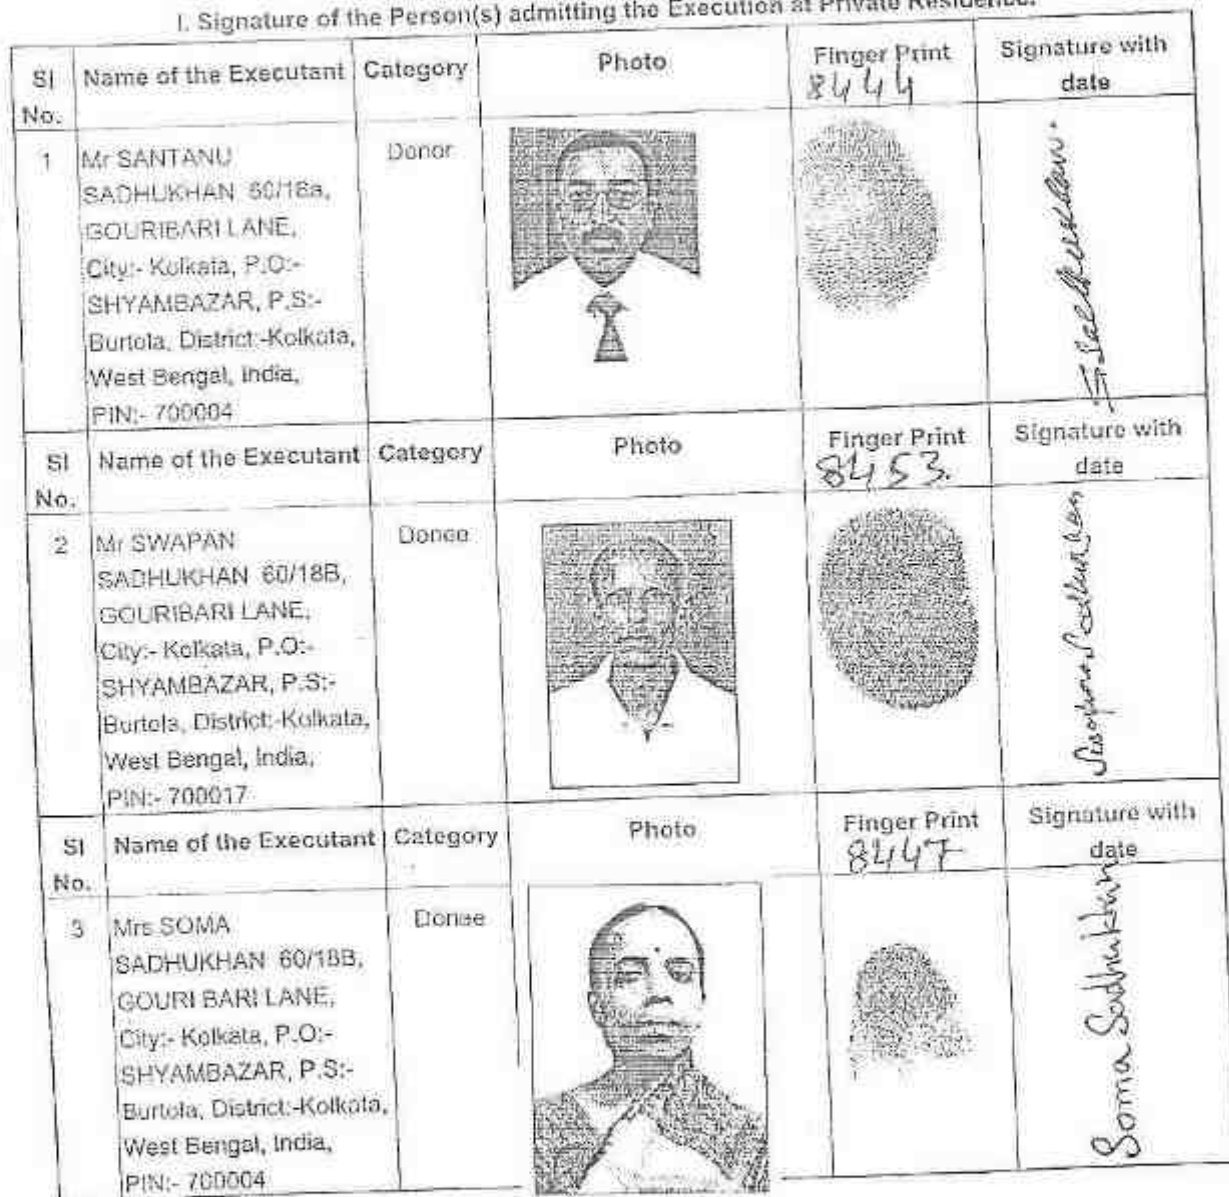 I. Signature of the Person(s) admitting the Execution at Private Residence.
Sl No. Name of the Executant Category Photo Finger Print Signature with date
8444
1 Mr SANTANU Donor
SADHUKHAN 60/18a,
GOURIBARI LANE,
City:- Kolkata, P.O:-
SHYAMBAZAR, P.S:-
Burtola, District:-Kolkata,
West Bengal, India,
PIN:- 700004
Sl No. Name of the Executant Category Photo Finger Print Signature with date
8453.
2 Mr SWAPAN Donee
SADHUKHAN 60/18B,
GOURIBARI LANE,
City:- Kolkata, P.O:-
SHYAMBAZAR, P.S:-
Burtola, District:-Kolkata,
West Bengal, India,
PIN:- 700017
Swapan Sadhukhan
Sl No. Name of the Executant Category Photo Finger Print Signature with date
8447
3 Mrs SOMA Donee
SADHUKHAN 60/18B,
GOURI BARI LANE,
City:- Kolkata, P.O:-
SHYAMBAZAR, P.S:-
Burtola, District:-Kolkata,
West Bengal, India,
PIN:- 700004
Soma Sadhukhan